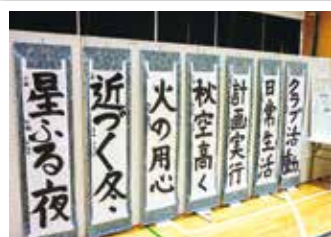 星ふる夜
近づく冬
火の用心
秋空高く
計画実行
日常生活
クラブ活動